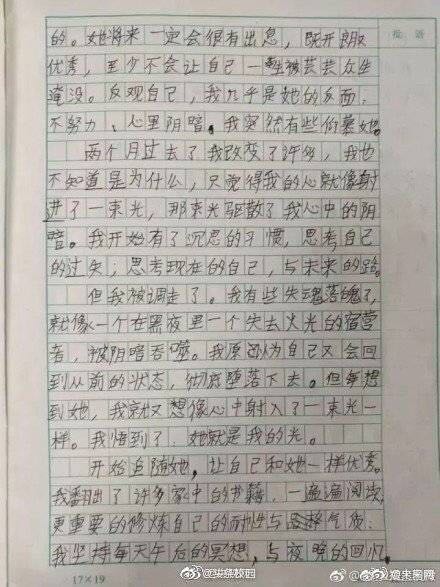 批 语
的。她将来一定会很有出息，既开朗又
优秀，至少不会让自己一生被芸芸众生
淹没。反观自己，我几乎是她的反面，
不努力、心里阴暗。我突然有些仰慕她。
两个月过去了我改变了许多，我也
不知道是为什么，只觉得我的心就像射
进了一束光，那束光驱散了我心中的阴
暗。我开始有了沉思的习惯，思考自己
的过失；思考现在的自己，与未来的路。
但我被调走了。我有些失魂落魄了，
就像一个在黑夜里一个失去火光的宿营
者，被阴暗吞噬。我原因为自己又会回
到从前的状态，彻底堕落下去。但每想
到她，我就又想像心中射入了一束光一
样。我悟到了，她就是我的光。
开始追随她，让自己和她一样优秀。
我翻出了许多家中的书籍，一遍遍阅读，
更重要的修炼自己的耐性与气质：
我坚持每天午后的冥想，与夜晚的回忆，
17×19